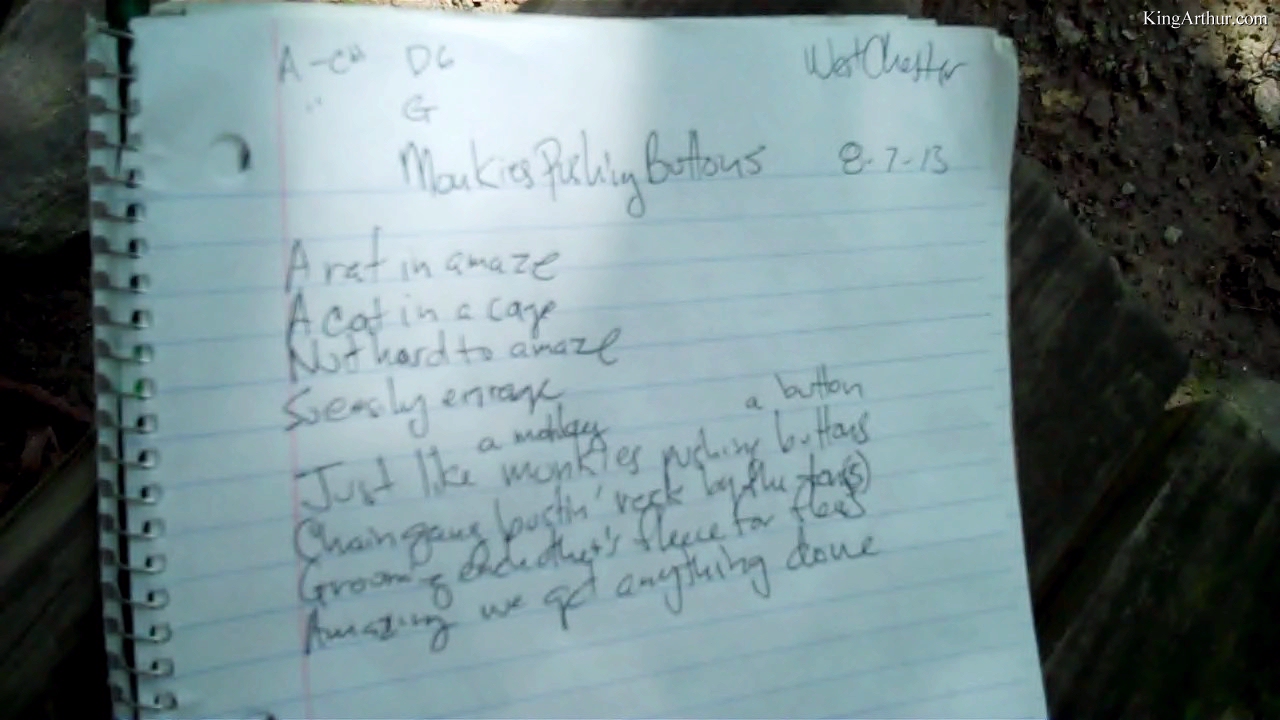 KingArthur.com
A - C# DG WestChester
" G
Monkies Pushing Buttons 8-7-13
A rat in a maze
A cat in a cage
Not hard to amaze
So easily enrage
a monkey a button
Just like monkies pushing buttons
Chain gang bustin' rock by the ton(s)
Grooming each other's fleece for fleas
Amazing we get anything done